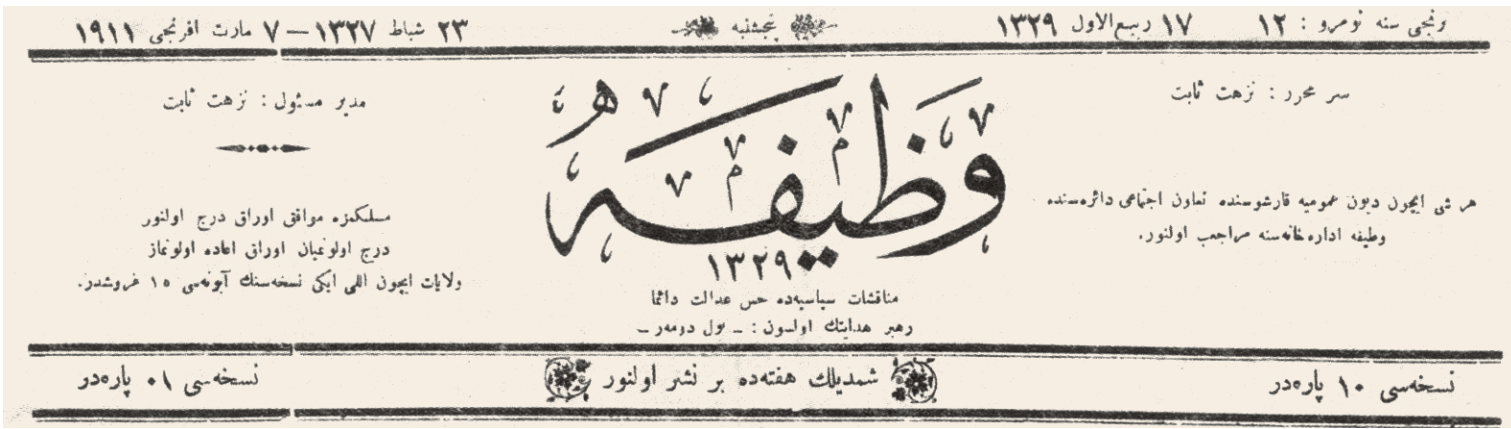 ونجی سنه نومرو : ١٢ ١٧ ربیع‌الاول ١٣٢٩ پنجشنبه ٢٣ شباط ١٣٢٧ — ٧ مارت افرنجی ١٩١١
سر محرر : نزهت ثابت
هر شی ایچون دیون عمومیه قارشوسنده تعاون اجتماعی دائره‌سنده
وظیفه اداره‌خانه‌سنه مراجعت اولنور.
وظیفه
١٣٢٩
مناقشات سیاسیه‌ده حس عدالت دائما
رهبر هدایتك اولسون : ـ پول دومه‌ر ـ
مدیر مسئول : نزهت ثابت
مسلکمزه موافق اوراق درج اولنور
درج اولونمیان اوراق اعاده اولونماز
ولایات ایچون اللی ایکی نسخه‌سنك آبونه‌سی ١٥ غروشدر.
نسخه‌سی ١٠ پاره‌در شمدیلك هفته‌ده بر نشر اولنور نسخه‌سی ٠١ پاره‌در